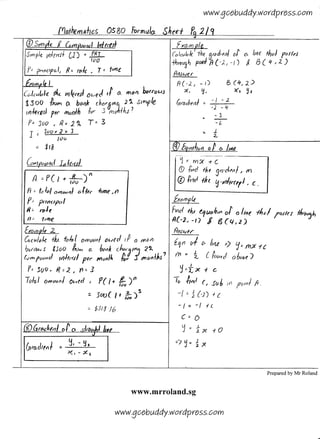 www.gcebuddy.wordpress.com
Mathematics OSBO Formula Sheet Pg 2/9
⑦ Simple & Compound Interest
Simple interest (I) = PRT/100
P = principal, R = rate, T = time
Example 1
Calculate the interest owed if a man borrows
$300 from a bank charging 2% simple
interest per month for 3 months?
P = 300, R = 2% T = 3
I = 300 × 2 × 3 / 100
= $18
Compound Interest
A = P(1 + R/100)^n
A = total amount after time, n
P = principal
R = rate
n = time
Example 2
Calculate the total amount owed if a man
borrows $300 from a bank charging 2%
compound interest per month for 3 months?
P = 300, R = 2, n = 3
Total amount owed = P(1 + R/100)^n
= 300(1 + 2/100)^3
= $318.36
⑧ Gradient of a straight line
Gradient = y₁ - y₂ / x₁ - x₂
Example
Calculate the gradient of a line that passes
through point A(-2, -1) & B(4, 2)
Answer
A(-2, -1) B(4, 2)
x₁ y₁ x₂ y₂
Gradient = -1 - 2 / -2 - 4
= -3 / -6
= 1/2
⑨ Equation of a line
y = mx + c
① find the gradient, m
② find the y-intercept, c.
Example
Find the equation of a line that passes through
A(-2, -1) & B(4, 2)
Answer
Eqn of a line => y = mx + c
m = 1/2 (found above)
y = 1/2 x + c
To find c, sub in point A.
-1 = 1/2(-2) + c
-1 = -1 + c
c = 0
y = 1/2 x + 0
=> y = 1/2 x
Prepared by Mr Roland
www.mrroland.sg
www.gcebuddy.wordpress.com